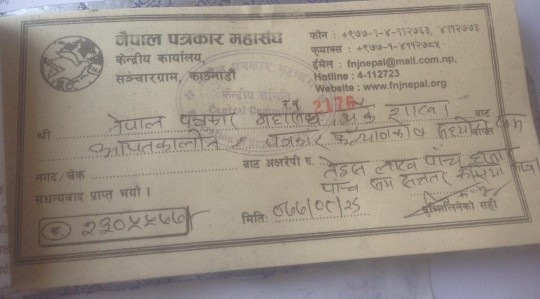 नेपाल पत्रकार महासंघ
केन्द्रीय कार्यालय,
सञ्चारग्राम, काठमाडौं
फोन : +९७७-१-४-११२७६३, ४११२७७३
फ्याक्स : +९७७-१-४११२७८५
ईमेल : fnjnepal@mail.com.np,
Hotline : 4-112723
Website : www.fnjnepal.org
केन्द्रीय समिति
Central Committee
र.नं. 2176
श्री नेपाल पत्रकार महासंघ शाखा बाट
पत्रकार कल्याणकोष
नगद / चेक बाट अक्षरेपी रु. तेइस लाख पाँच हजार
सधन्यवाद प्राप्त भयो । पाँच सय सतसठ्ठी
रु. २३०५५६७
मिति: ०७७/०८/२५
बुझिलिनेको सही